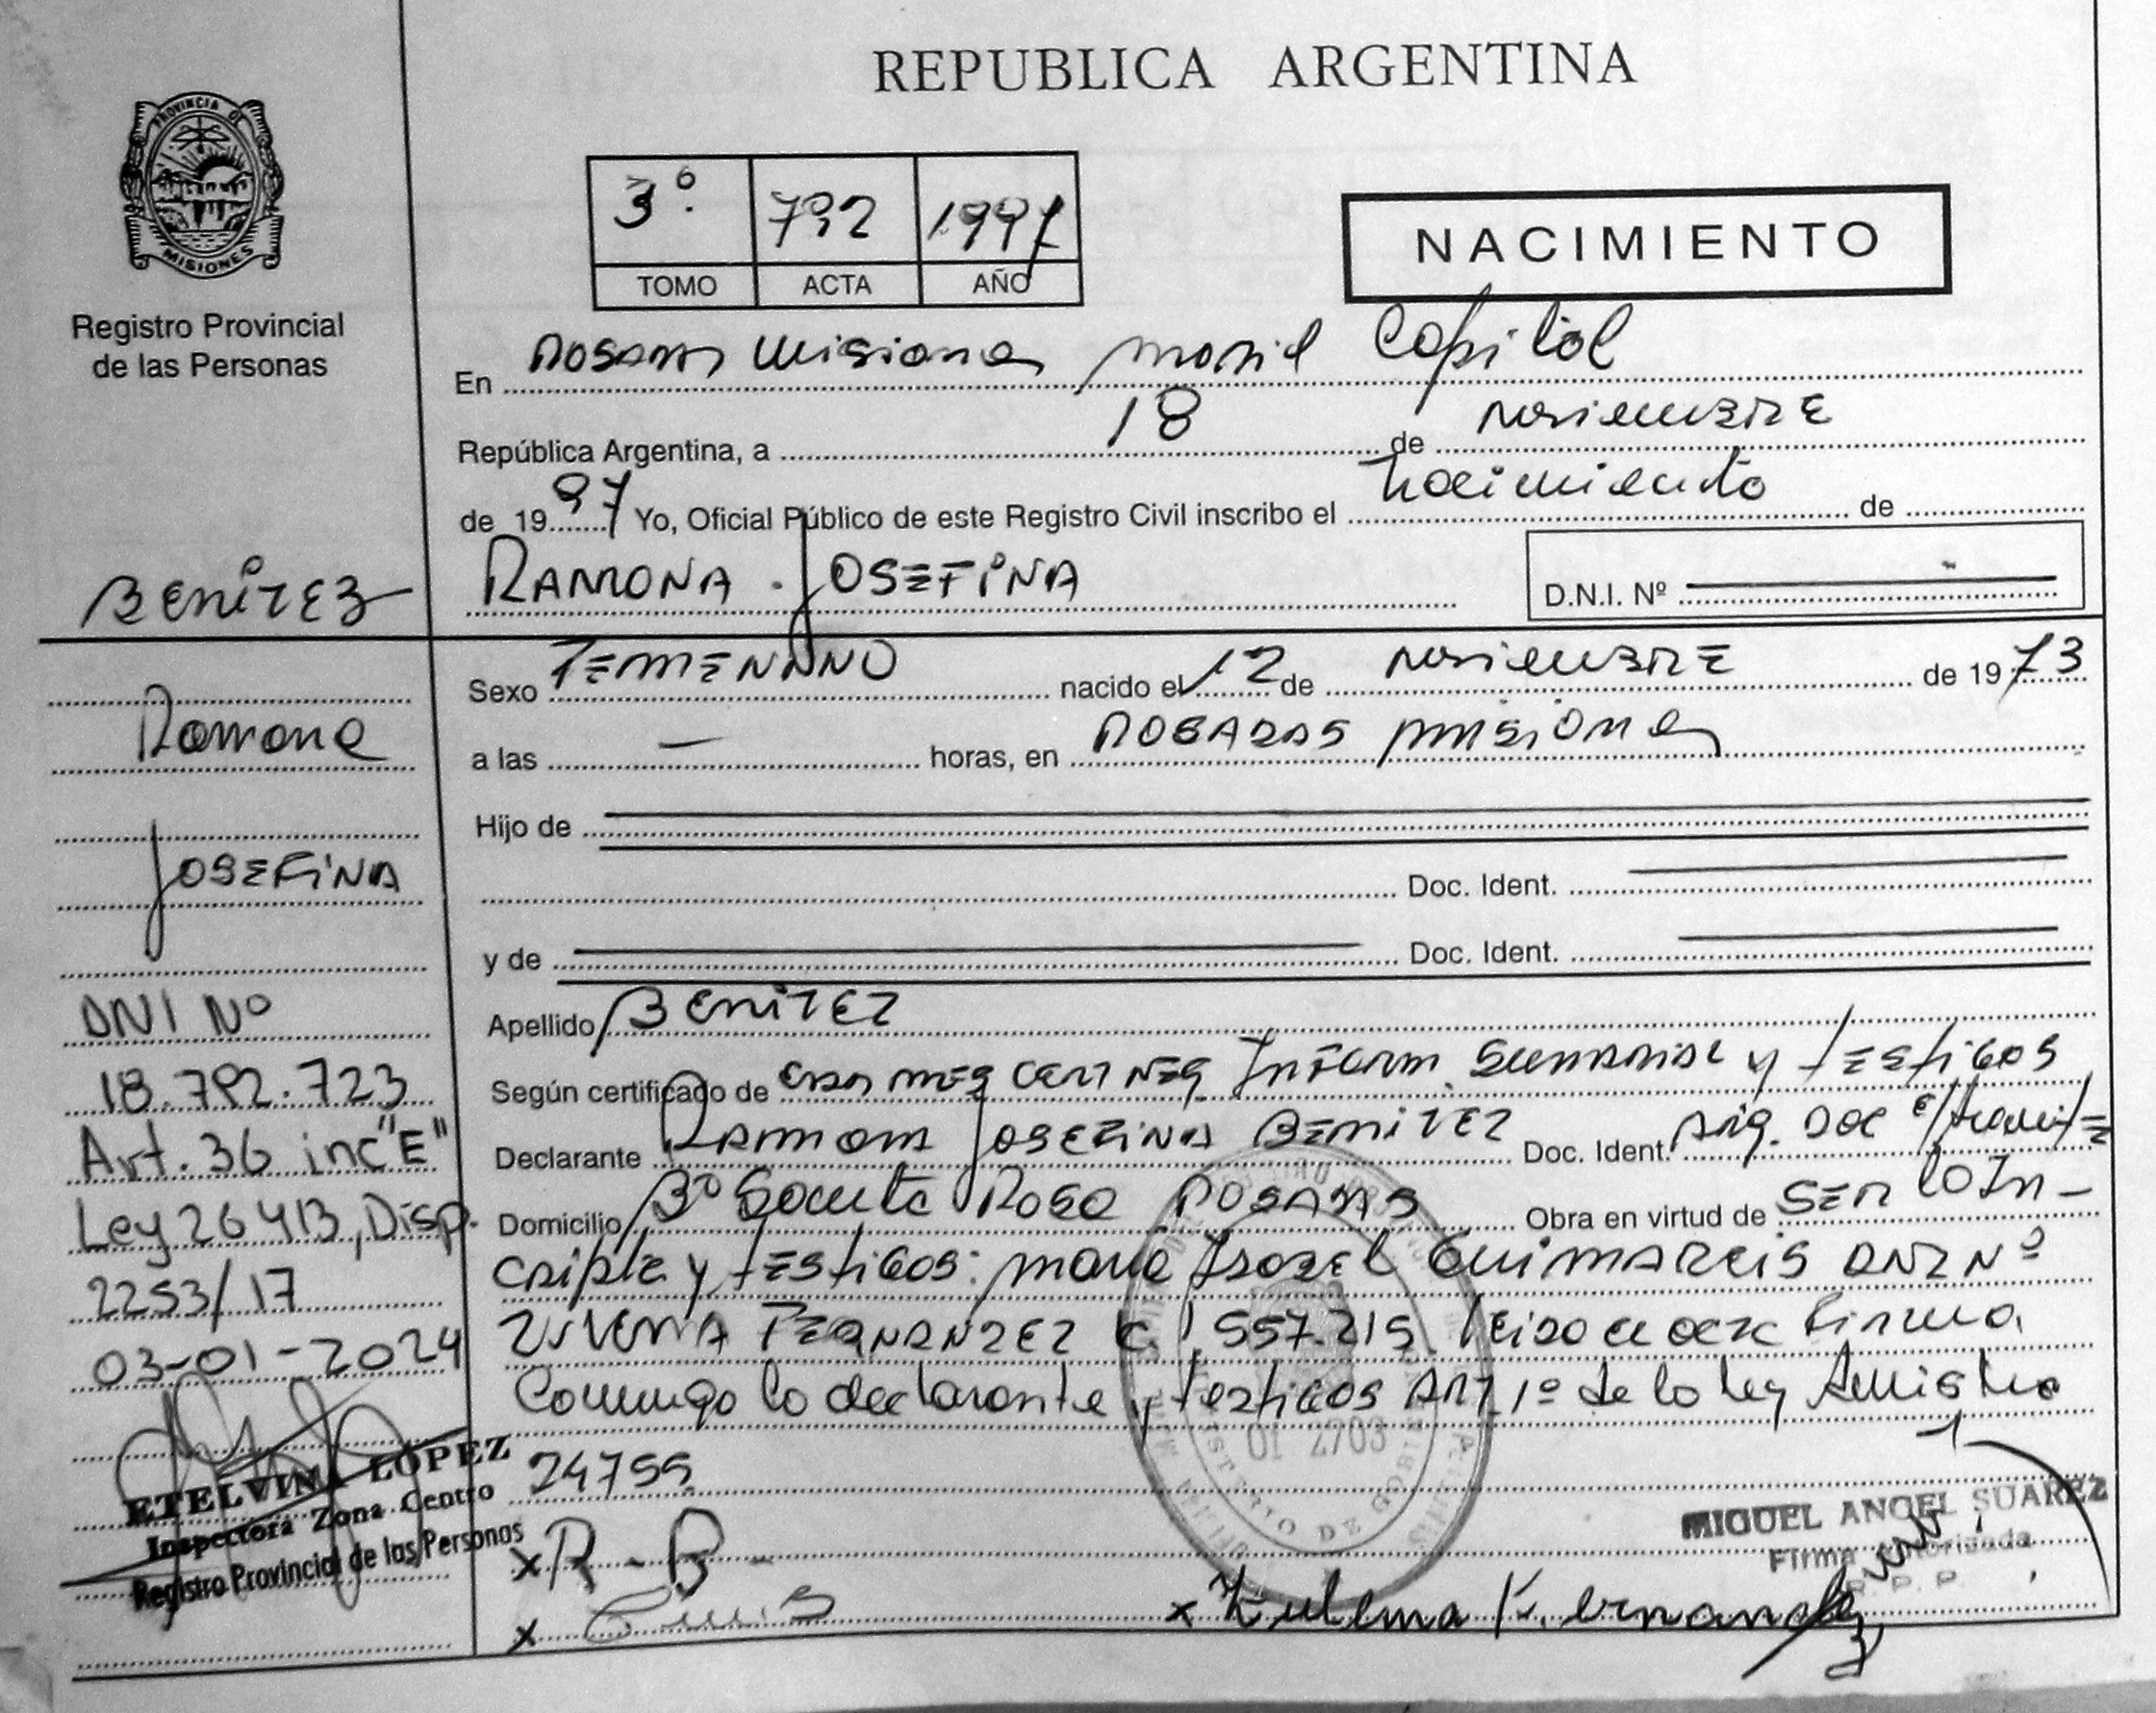 REPUBLICA ARGENTINA
PROVINCIA DE
MISIONES
Registro Provincial
de las Personas
3º. 792 1997
TOMO ACTA AÑO
NACIMIENTO
En Posadas Misiones movil Capital
República Argentina, a 18 de noviembre
de 1997 Yo, Oficial Público de este Registro Civil inscribo el nacimiento de
RAMONA JOSEFINA
D.N.I. Nº
BENITEZ
Ramona
JOSEFINA
DNI Nº
18.792.723
Art. 36 inc "E"
Ley 26413, Disp.
2253/17
03-01-2024
ETELVINA LÓPEZ
Inspectora Zona Centro
Registro Provincial de las Personas
Sexo FEMENINO nacido el 12 de noviembre de 1973
a las — horas, en POSADAS Misiones
Hijo de
Doc. Ident.
y de Doc. Ident.
Apellido BENITEZ
Según certificado de neg cert neg Inform. Sumarial y testigos
Declarante Ramona JOSEFINA BENITEZ Doc. Ident. Doc e/tramite
Domicilio Bº Santa Rosa POSADAS Obra en virtud de SER la In-
cripta y testigos: Maria Isabel GUIMARAIS DNI Nº
FERNANDEZ 557.215 firma
Conmigo la declarante y testigos ART 1º de la ley Amistia
24755
x R - B -
x
x Zulema F. ernandez
MINISTERIO DE GOBIERNO
MIGUEL ANGEL SUAREZ
Firma Autorizada
R. P. P.